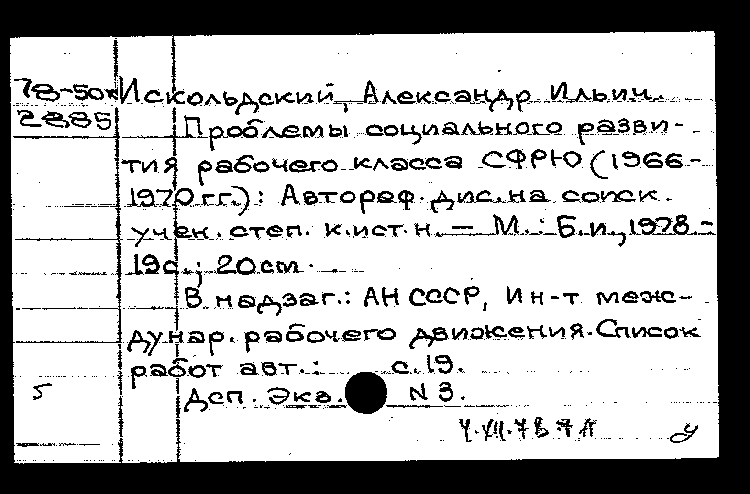 78-50к Искольдский, Александр Ильич.
2885 Проблемы социального разви-
тия рабочего класса СФРЮ (1966-
1970 гг.): Автореф. дис. на соиск.
учен. степ. к.ист.н. — М.: Б.и., 1978. -
19с.; 20см.
В надзаг.: АН СССР, Ин-т меж-
дунар. рабочего движения. Список
работ авт.: с.19.
5 Дсп. Экз. N 3.
у